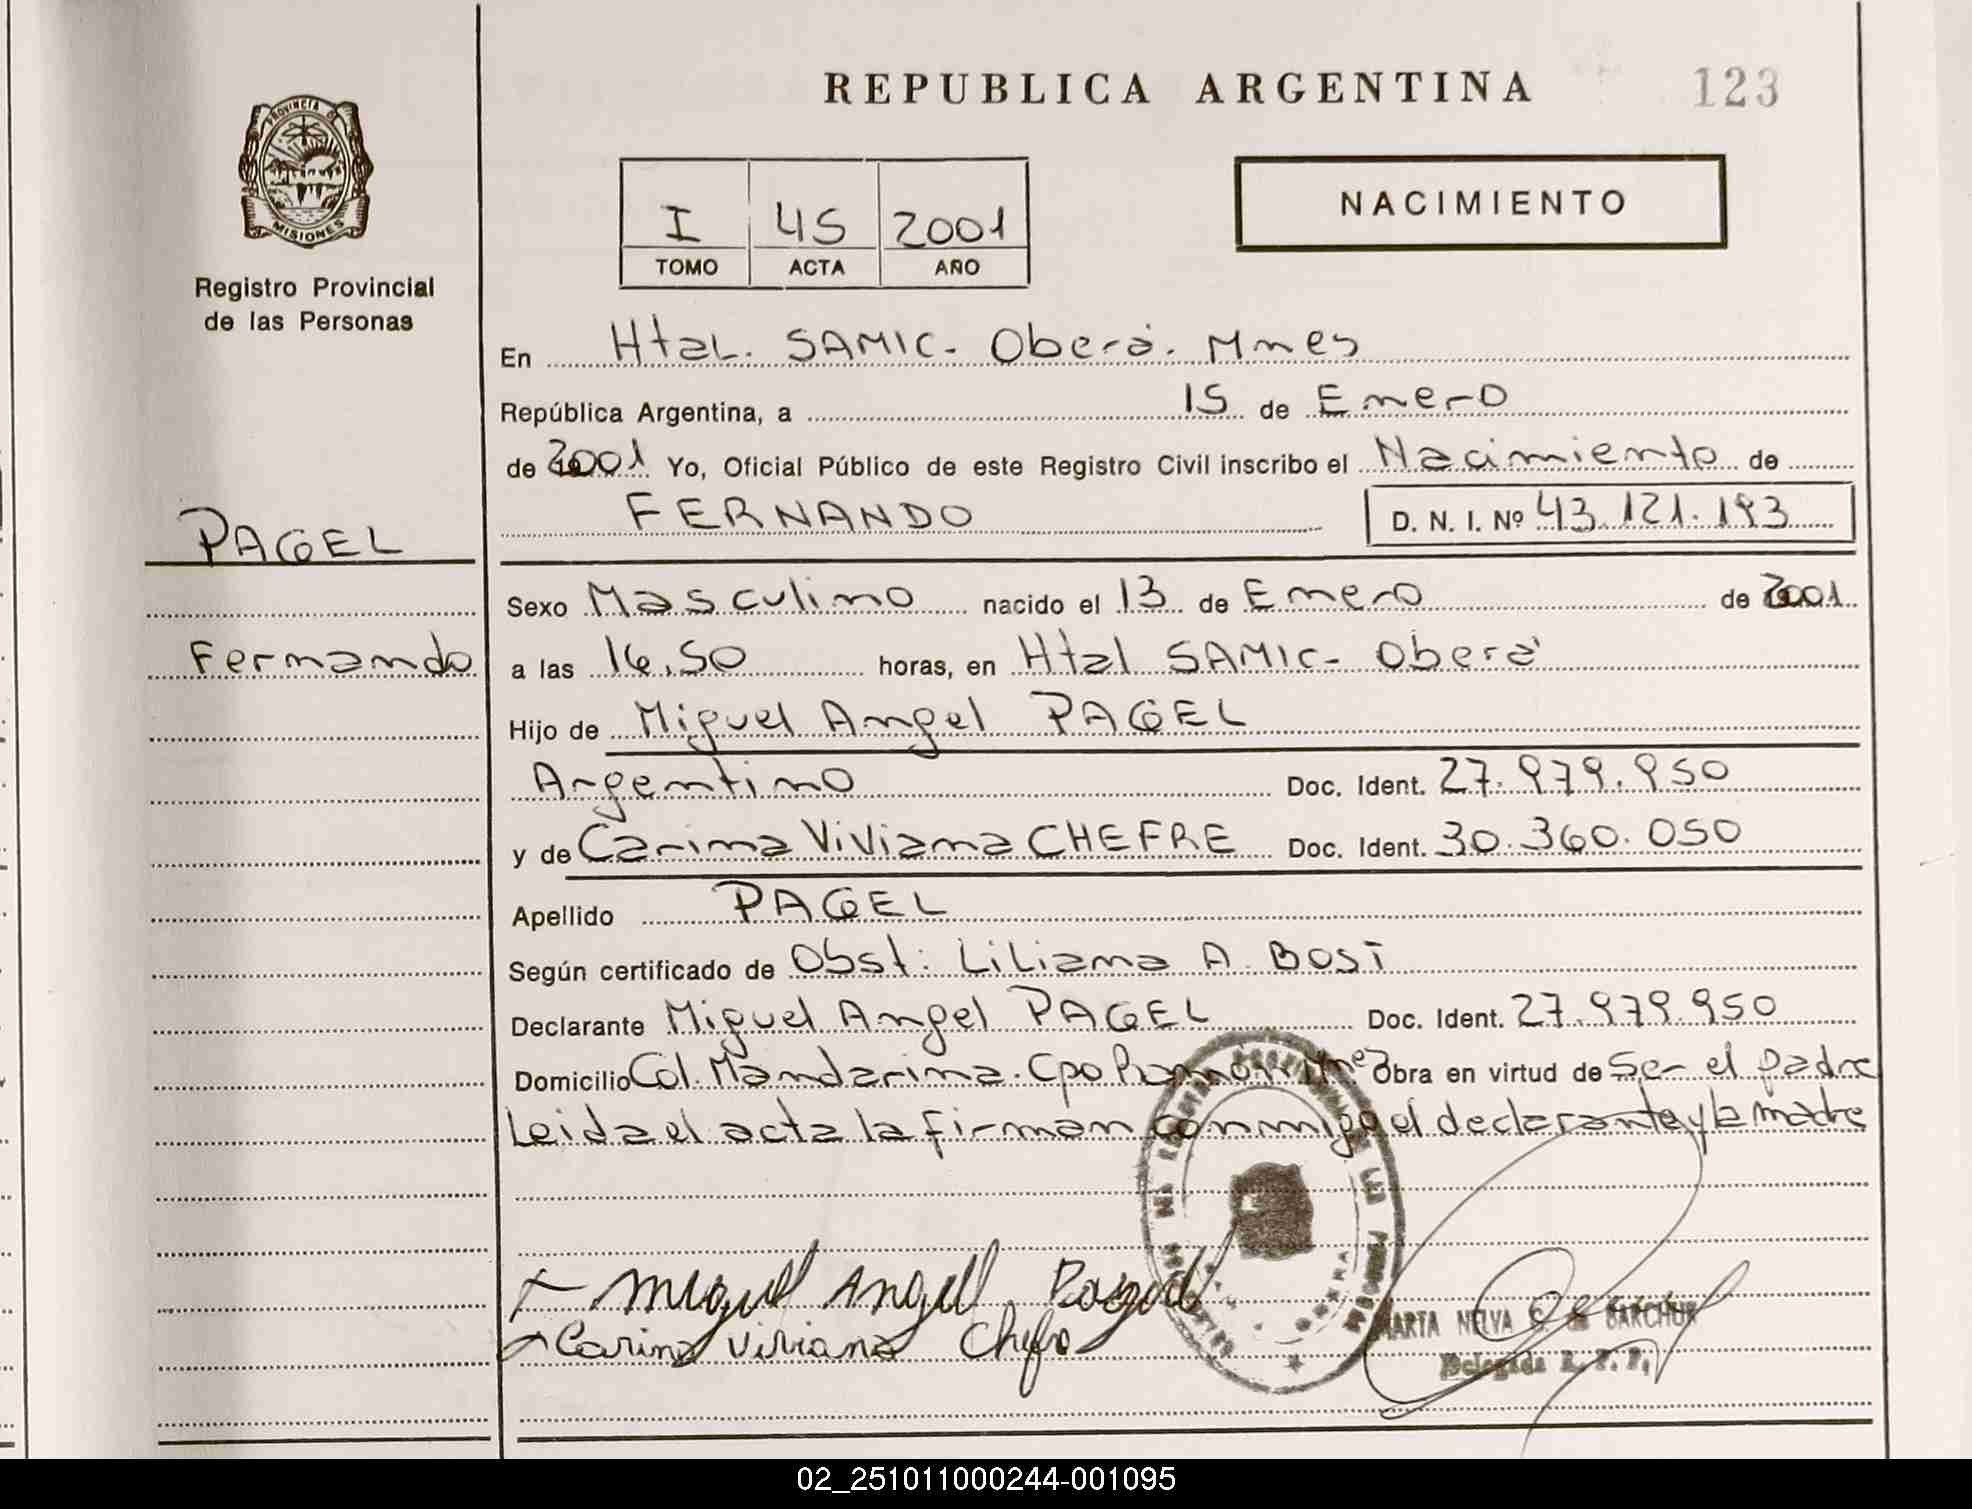 REPUBLICA ARGENTINA
123
PROVINCIA DE
MISIONES
Registro Provincial
de las Personas
I 45 2001
TOMO ACTA AÑO
NACIMIENTO
En Htal. SAMIC. Oberá. Mnes
República Argentina, a 15 de Enero
de 2001 Yo, Oficial Público de este Registro Civil inscribo el Nacimiento de
FERNANDO D. N. I. Nº 43.121.193
PAGEL
Fernando
Sexo Masculino nacido el 13 de Enero de 2001
a las 14,50 horas, en Htal SAMIC- Oberá
Hijo de Miguel Angel PAGEL
Argentino Doc. Ident. 27.979.950
y de Carina Viviana CHEFRE Doc. Ident. 30.360.050
Apellido PAGEL
Según certificado de Obst: Liliana A. BOSI
Declarante Miguel Angel PAGEL Doc. Ident. 27.979.950
Domicilio Col. Mandarina. Cpo Ramón Mnes Obra en virtud de Ser el padre
Leida el acta la firman conmigo el declarante y la madre
Miguel Angel
Carina Viviana
MARTA NELVA
Delegada R. P. P.
02_251011000244-001095